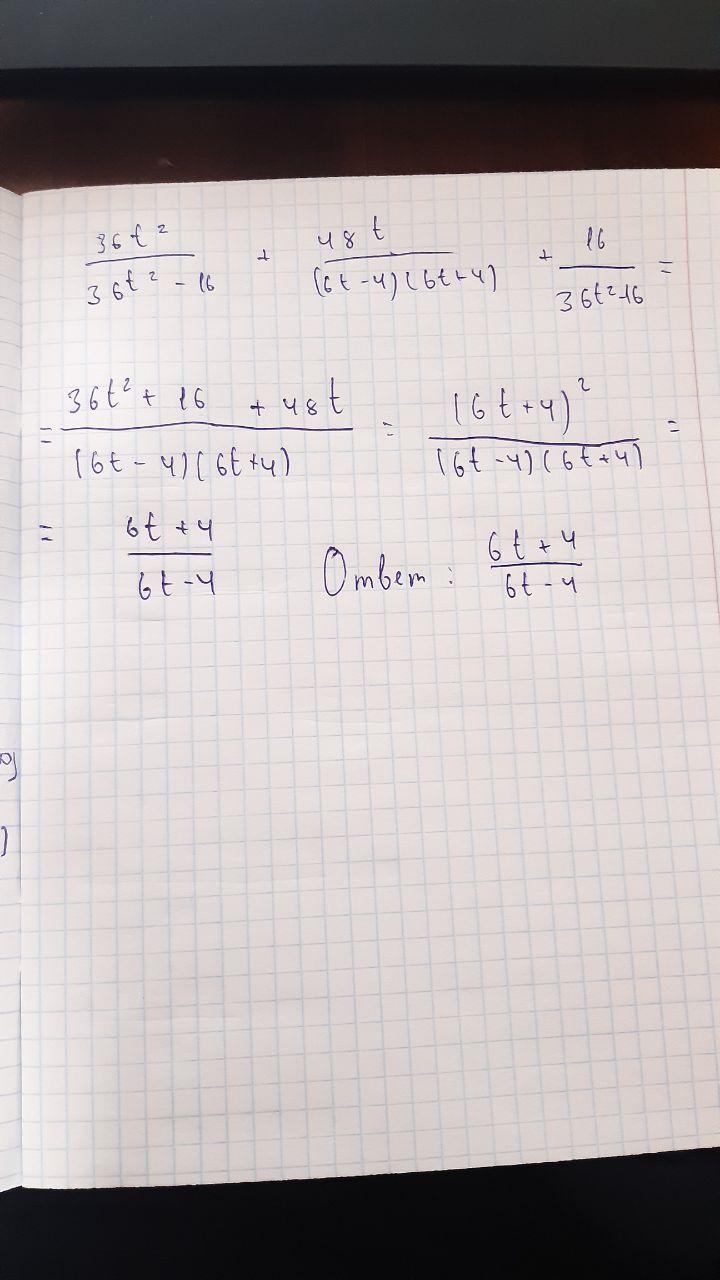 36t² / (36t² - 16) + 48t / ((6t-4)(6t+4)) + 16 / (36t²-16) =
= (36t² + 16 + 48t) / ((6t-4)(6t+4)) = (6t+4)² / ((6t-4)(6t+4)) =
= (6t+4) / (6t-4) Ответ: (6t+4) / (6t-4)